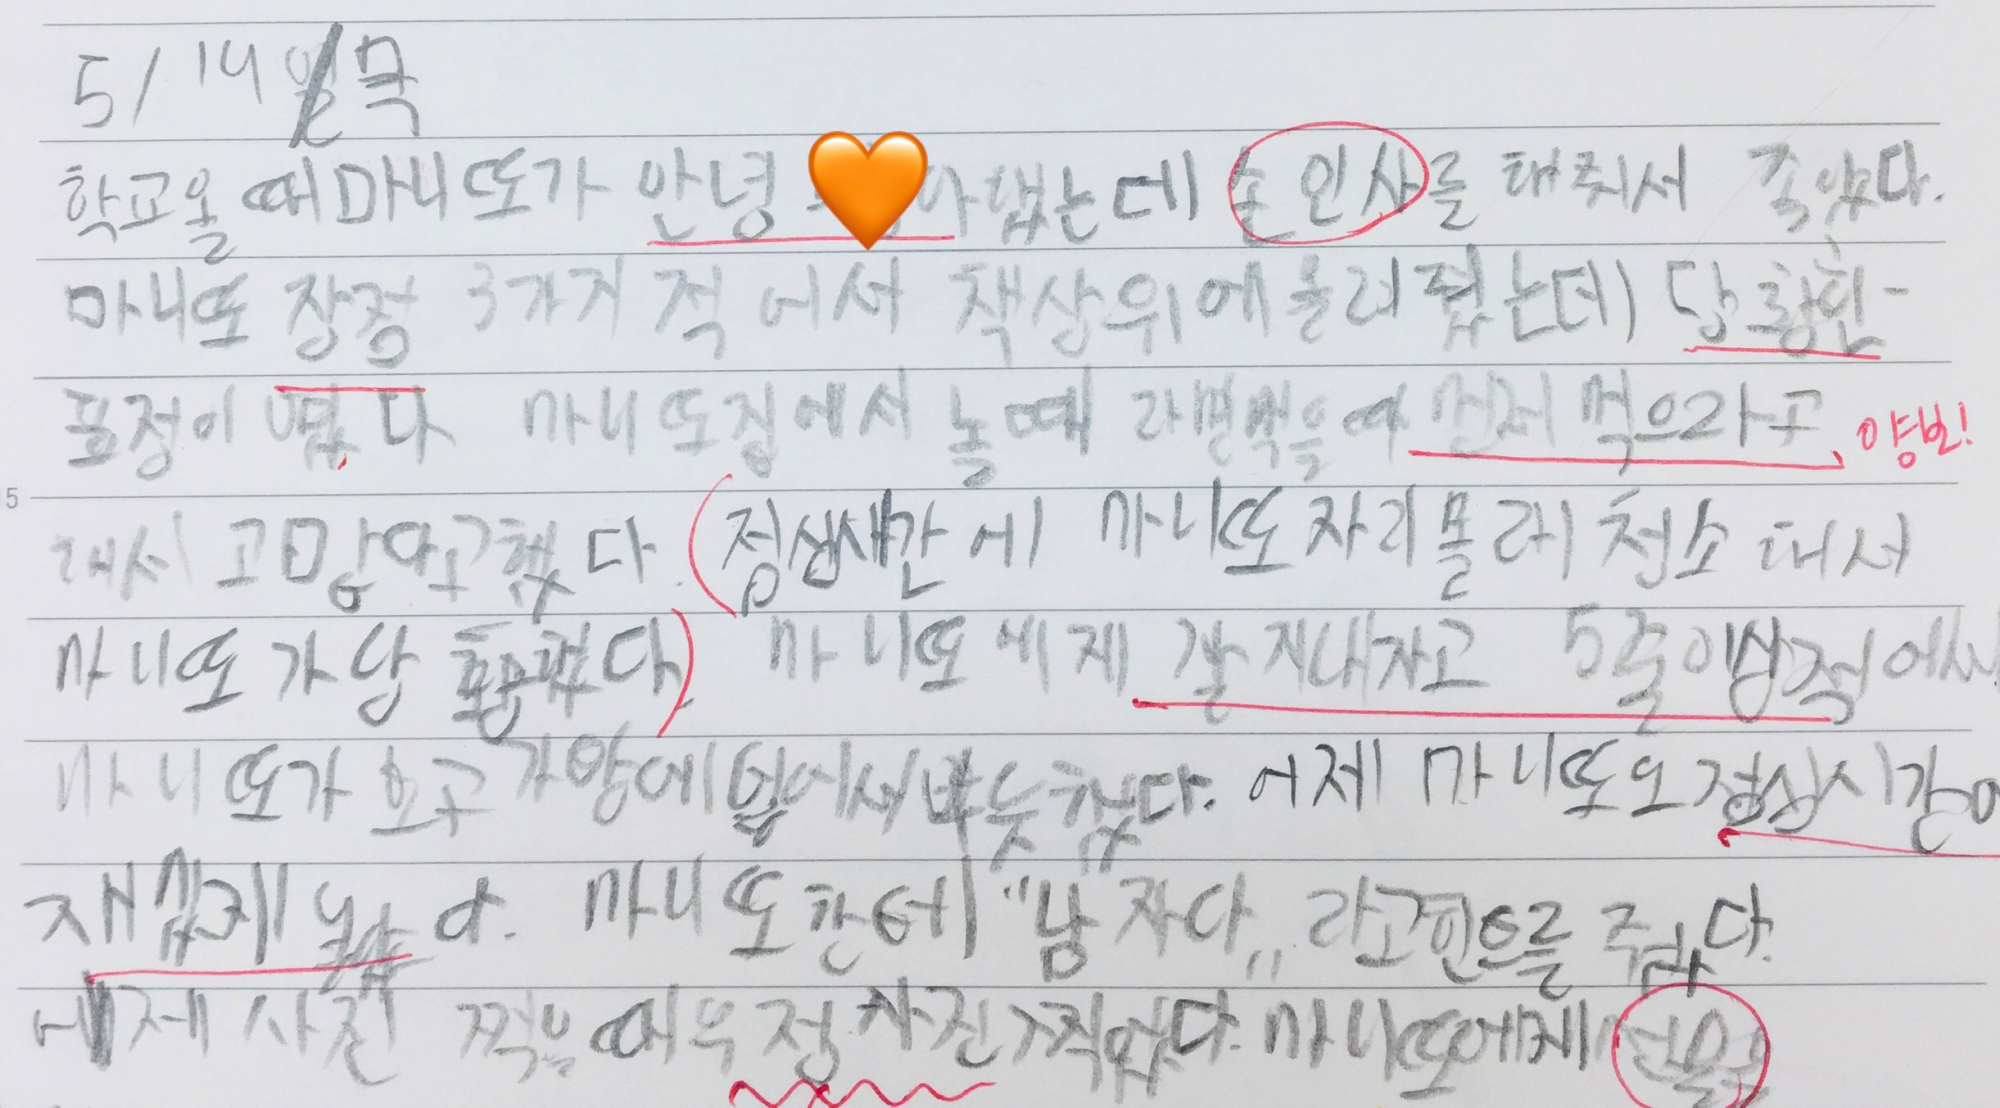 5/14 목
학교올 때 마니또가 안녕 🧡 댔는데 손인사를 해줘서 좋았다.
마니또 장점 3가지 적어서 책상위에 올려줬는데 당황한-
표정이 였다 마니또집에서 놀때 라면먹을때 먼저 먹으라고 양보!
해서 고맙다고했다. (점심새간에 마니또자리 몰래 청소해서
마니또가 감 다) 마니또에게 잘 지내자고 5줄이상적어서
마니또가 보고 가방에 넣어서 뿌듯했다. 어제 마니또오 점심시간에
재밌게 놀았다. 마니또한테 "남자다" 라고 힌트를 주었다.
어제 사진 찍을때 우정사진 찍었다. 마니또에게 선물
5